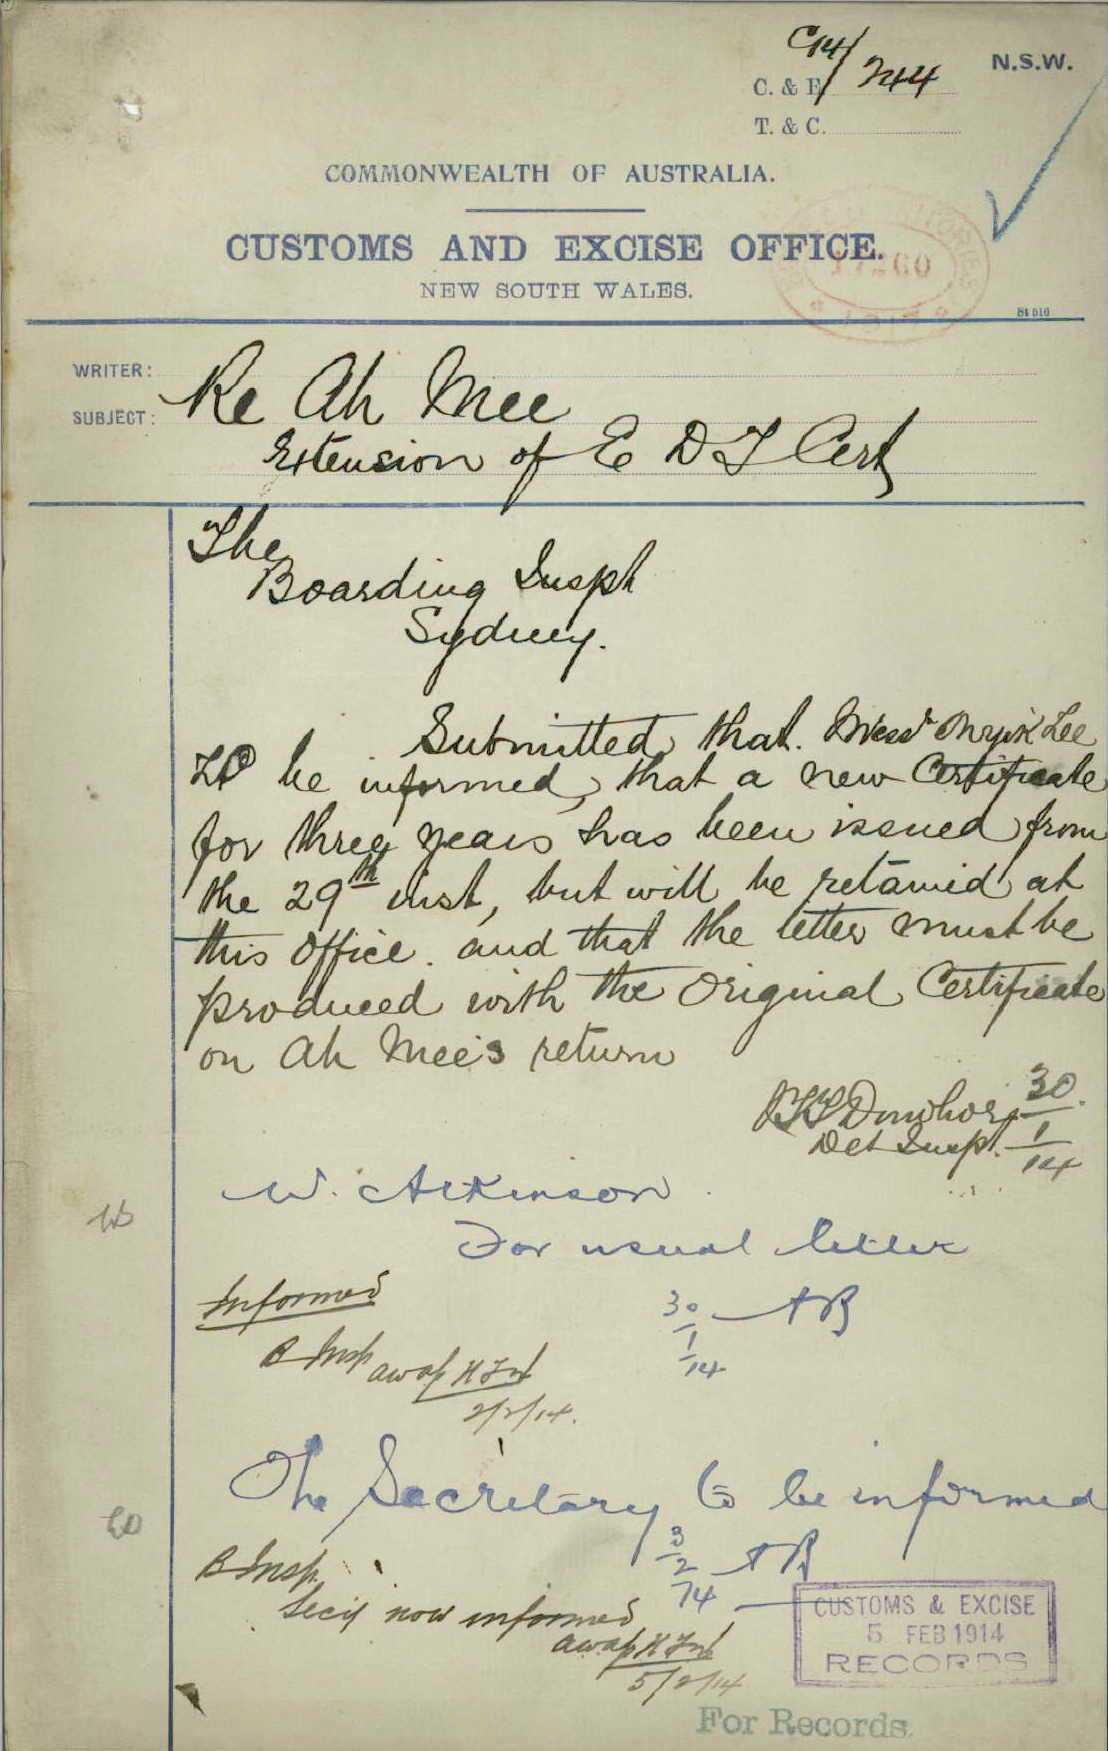 C14/244
N.S.W.
C. & E.
T. & C.
COMMONWEALTH OF AUSTRALIA.
CUSTOMS AND EXCISE OFFICE.
NEW SOUTH WALES.
WRITER:
SUBJECT:
Re Ah Mee
Extension of E D T Cert
The
Boarding Inspt
Sydney.
Submitted, that. Messrs Lee
to be informed, that a new Certificate
for three years has been issued from
the 29th inst, but will be retained at
this Office. and that the letter must be
produced with the Original Certificate
on Ah Mee's return
Donohoe 30/1/14
Det Insp.
W. Atkinson
For usual letter
30/1/14 AB
Informed
B Insp
2/2/14.
The Secretary to be informed
3/2/14 AB
B Insp.
Secy now informed
5/2/14
CUSTOMS & EXCISE
5 FEB 1914
RECORDS
For Records.